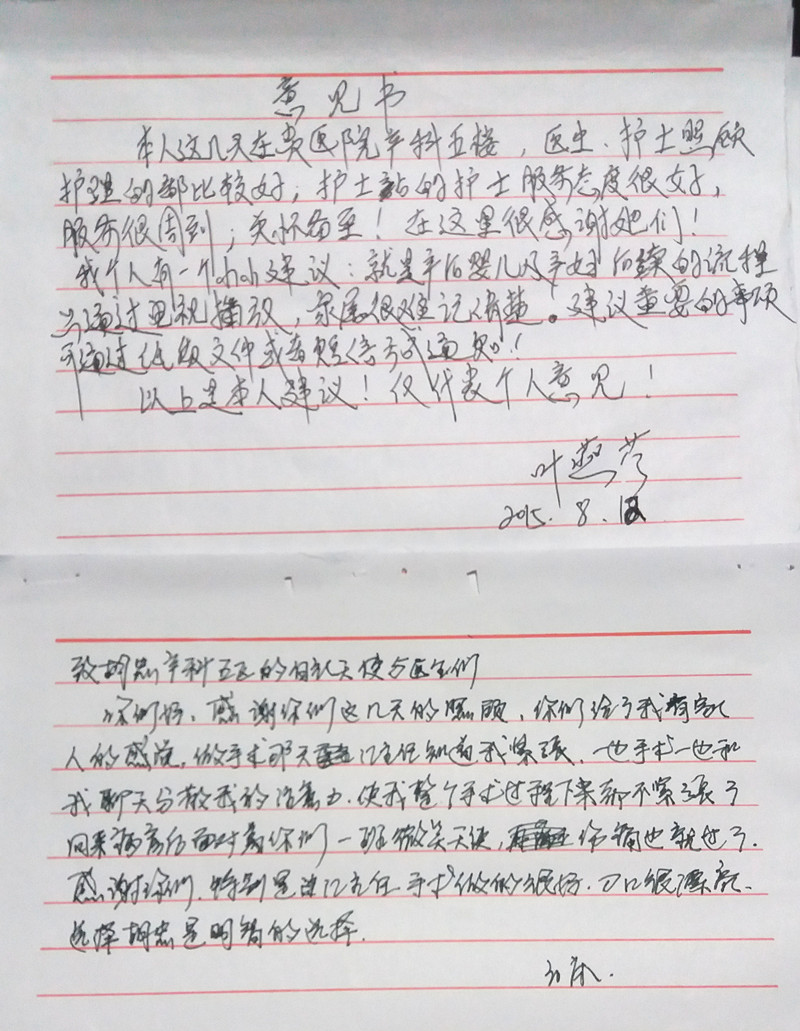 意见书
本人这几天在贵医院产科五楼，医生、护士照顾
护理的都比较好；护士站的护士服务态度很好，
服务很周到；关怀备至！在这里很感谢她们！
我个人有一个小小建议：就是产后婴儿及产妇后续的流程
只通过电视播放，家属很难记清楚。建议重要的事项
可通过纸质文件或者短信方式通知！
以上是本人建议！仅代表个人意见！
叶燕芳
2015.8.12
致胡忠产科五区的白衣天使与医生们
你们好，感谢你们这几天的照顾，你们给了我有家
人的感觉，做手术那天江主任知道我紧张，边手术边和
我聊天分散我的注意力，使我整个手术过程下来都不紧张了
回来病房后面对着你们一班微笑天使，伤痛也就过了.
感谢你们，特别是江主任手术做的很好，刀口很漂亮.
选择胡忠是明智的选择.